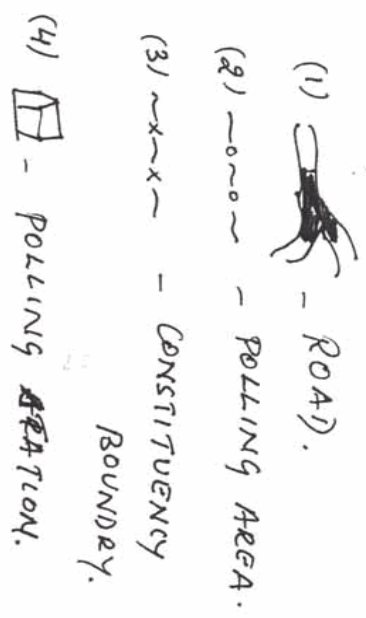 (1) - ROAD.
(2) ~o~o~ - POLLING AREA.
(3) ~x~x~ - CONSTITUENCY
BOUNDRY.
(4) - POLLING STATION.